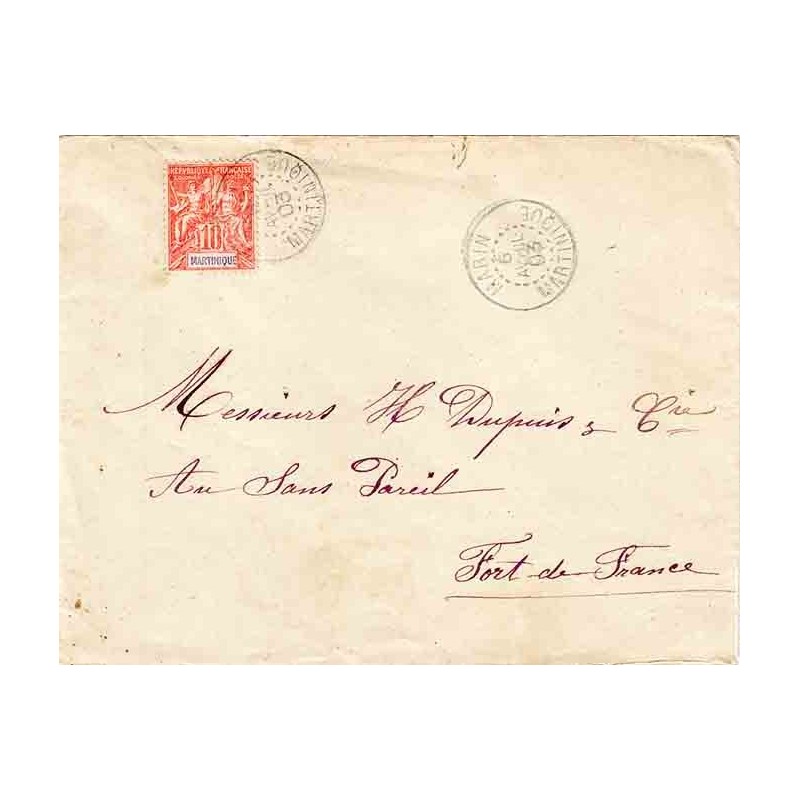 RÉPUBLIQUE FRANÇAISE
COLONIES POSTES
10
MARTINIQUE
MARTINIQUE
AVRIL
03
MARIN
5
AVRIL
03
MARTINIQUE
Messieurs H Dupuis & Cie
Au Sans Pareil
Fort-de-France